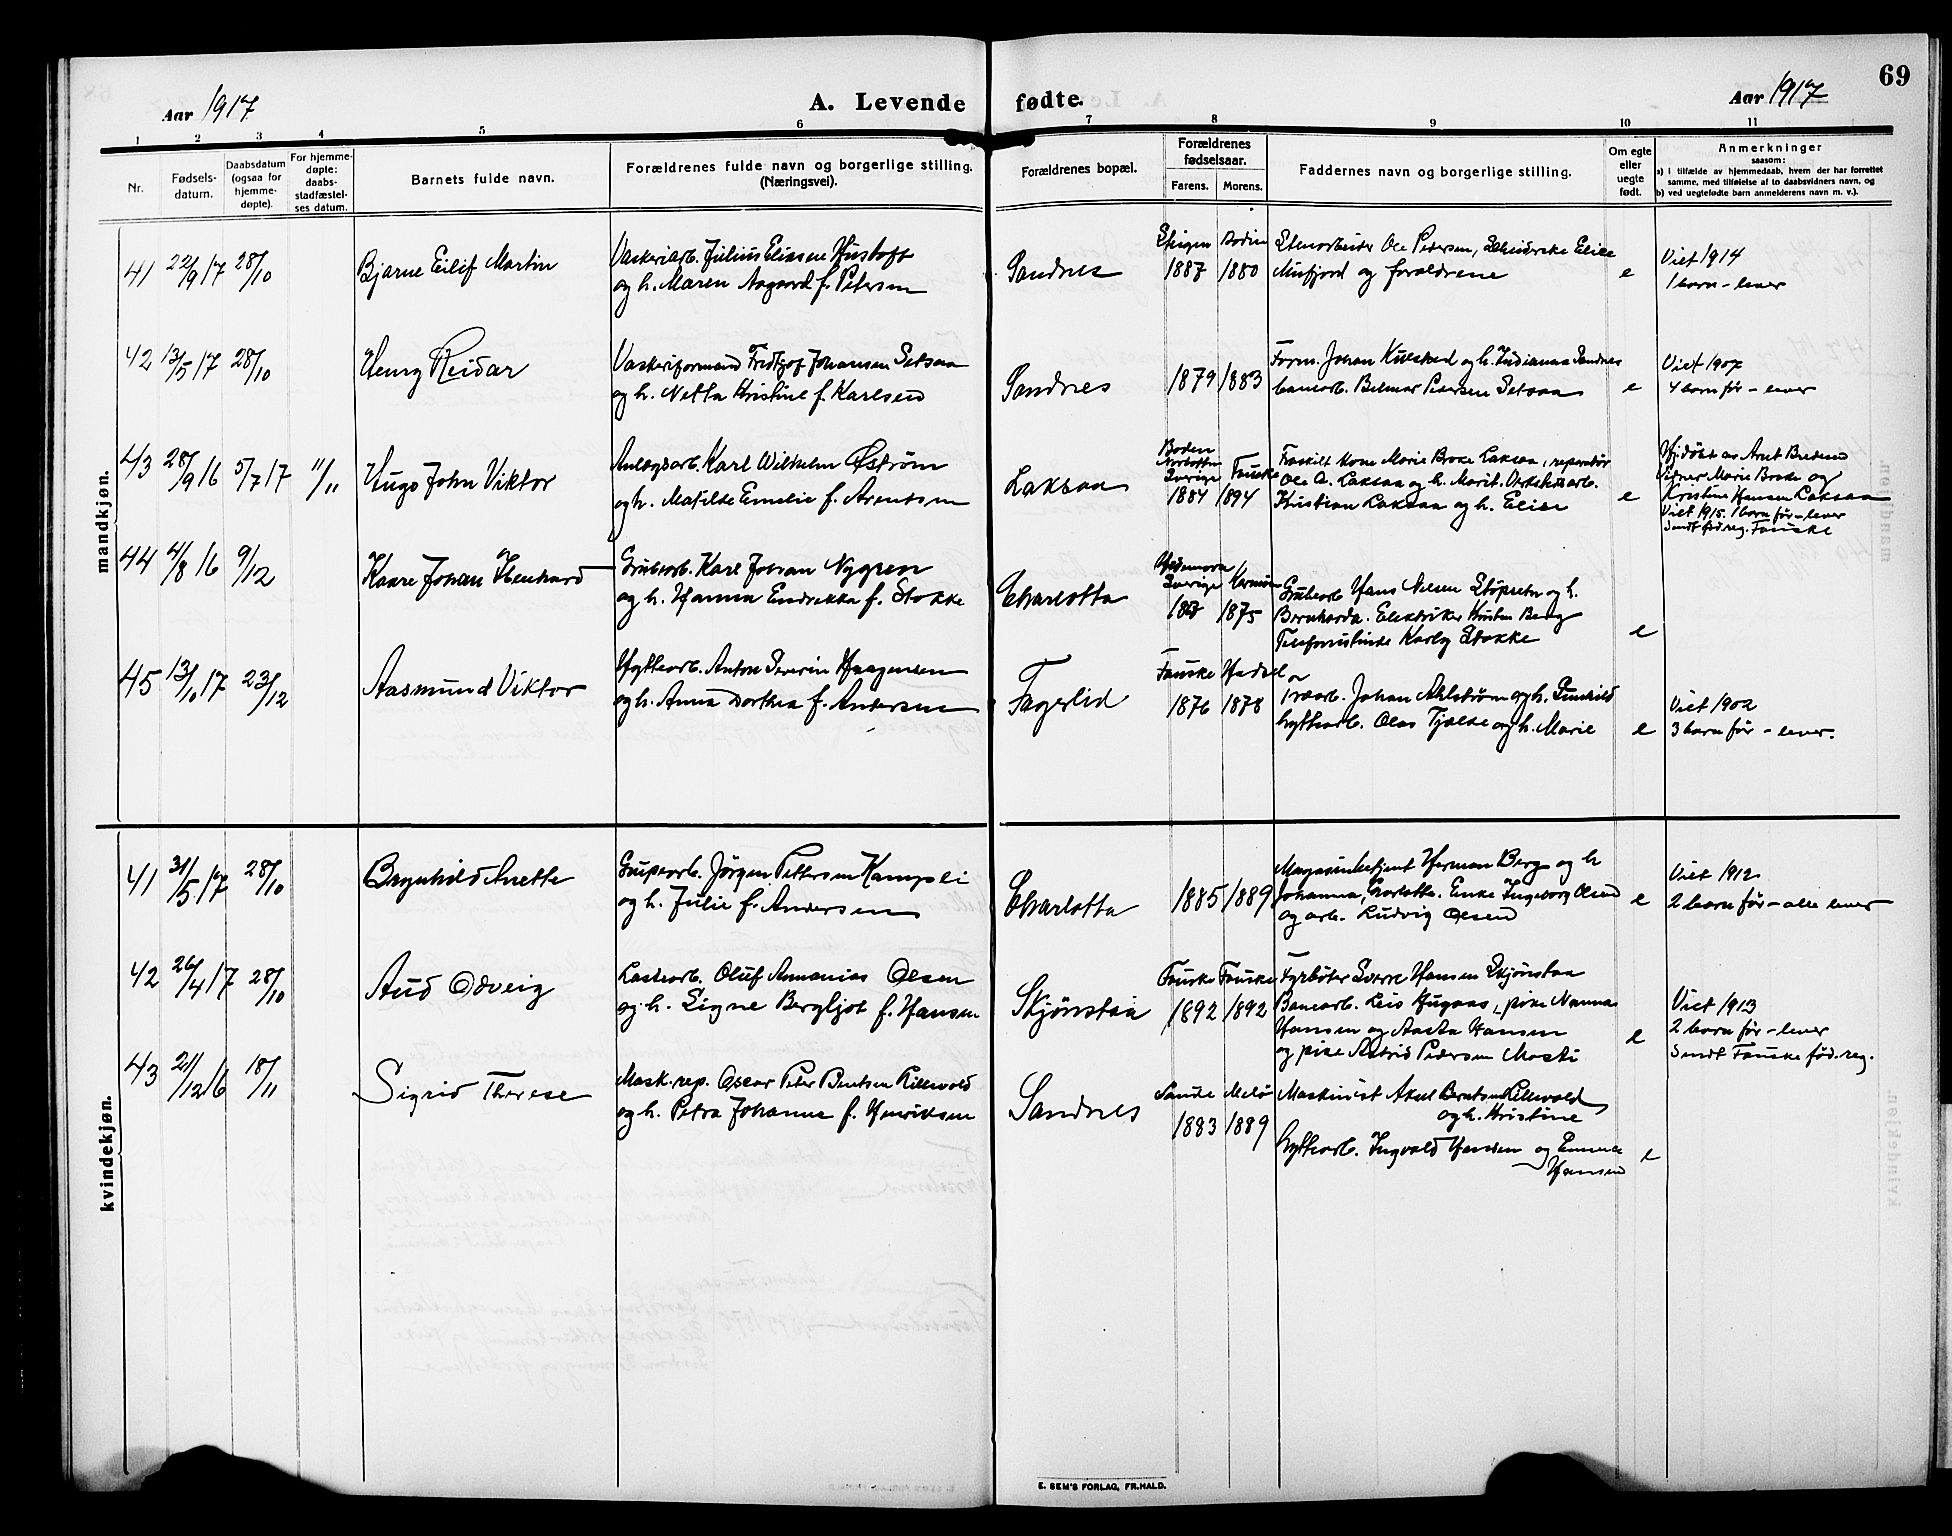 69
Aar 1917
A. Levende fødte.
Aar 1917
1 2 3 4 5 6 7 8 9 10 11
Nr.
Fødsels-
datum.
Daabsdatum
(ogsaa for
hjemme-
døpte).
For hjemme-
døpte:
daabs-
stadfæstel-
ses datum.
Barnets fulde navn.
Forældrenes fulde navn og borgerlige stilling.
(Næringsvei).
Forældrenes bopæl.
Forældrenes
fødselsaar.
Farens. Morens.
Faddernes navn og borgerlige stilling.
Om egte
eller
uegte
født.
Anmerkninger
saasom:
a) i tilfælde av hjemmedaab, hvem der har forrettet
samme, med tilføielse af to daabsvidners navn, og
b) ved uegtefødte barn anmelderens navn m. v.).
mandkjøn.
41 22/9 17 28/10
Bjarne Eilif Martin
Vaskeriarb. Julius Eliasen Hustoft
og h. Maren Aagaard f. Petersen
Sandnes
1887 1880
Stenarbeider Ole Pedersen,
og forældrene
e
Viet 1914
1 barn - lever
42 13/5 17 28/10
Henry Reidar
Vaskeriformand Fridtjof Johansen Setsaa
og h. Netta Kristine f. Karlsen
Sandnes
1879 1883
Form. Johan Kulstad og h. Indianna Sandnes
banearb. Pedersen Setsaa
e
Viet 1907
4 barn før - lever
43 28/9 16 5/7 17 11/11
Hugo John Viktor
Anlægsarb. Karl Wilhelm Østrøm
og h. Matilde Emelie f. Arentsen
Laksaa
Boden
Norbotten
Sverige Fauske
1884 1894
Fraskilt kone Marie Broke Laksaa, reperatør
Ole A. Laksaa og h. Marit.
Kristian Laksaa og h. Elise
e
Hj.døbt av Arnt Bredesen
Vidner Marie Broke og
Kristine Hansen Laksaa
Viet 1915. 1 barn før - lever
Sendt fød.reg. Fauske
44 4/8 16 9/12
Kaare Johan
Grubearb. Karl Johan Nygren
og h. Hanna Endrikka f. Stokke
Charlotta
Hedemora
Sverige
1875
Grubearb Hans Nilsen Støpseter og h.
Bernharda. Elektriker Kristen Berg
Telefonistinde Karly Stokke
e
45 13/10 17 23/12
Aasmund Viktor
Hytteorb. Anton Severin Haagensen
og h. Anna Dorthea f. Andersen
Fagerlid
Fauske Hadsel
1876 1878
Johan Ahlstrøm og h. Gunhild
hyttearb. Olas Tjelse og h. Marie
e
Viet 1902
3 barn før - lever.
kvindekjøn.
41 31/5 17 28/10
Brynhild Anette
Jørgen Pettersen Kampli
og h. Julie f. Andersen
Charlotta
1885 1889
Magasinbetjent Herman Berg og h
Johanna, Charlotta. Enke Ingeborg Olsen
og arb. Ludvig Olsen
e
Viet 1912
2 barn før - alle lever
42 26/4 17 28/10
Aud Odveig
Lastearb. Oluf Annanias Olsen
og h. Signe Bergljot f. Hansen
Skjønstaa
Fauske Fauske
1892 1892
Fyrbøter Sverre Hansen Skjønstaa
Banearb. Leis pike Nanna
Hansen og Aasta Hansen
og pike Astrid Pedersen Mosti
e
Viet 1913
2 barn før - lever
Sendt Fauske fød. reg.
43 21/12 16 18/11
Sigrid Therese
Mask.rep. Oscar Peter Berntsen Lillevold
og h. Petra Johanne f. Henriksen
Sandnes
Sande Melø
1883 1889
Maskinist Aksel Berntsen Lillevold
og h. Kristine
hyttearb. Ingvald Hansen og Emma
Hansen
e
E. SEM'S FORLAG, FR.HALD.